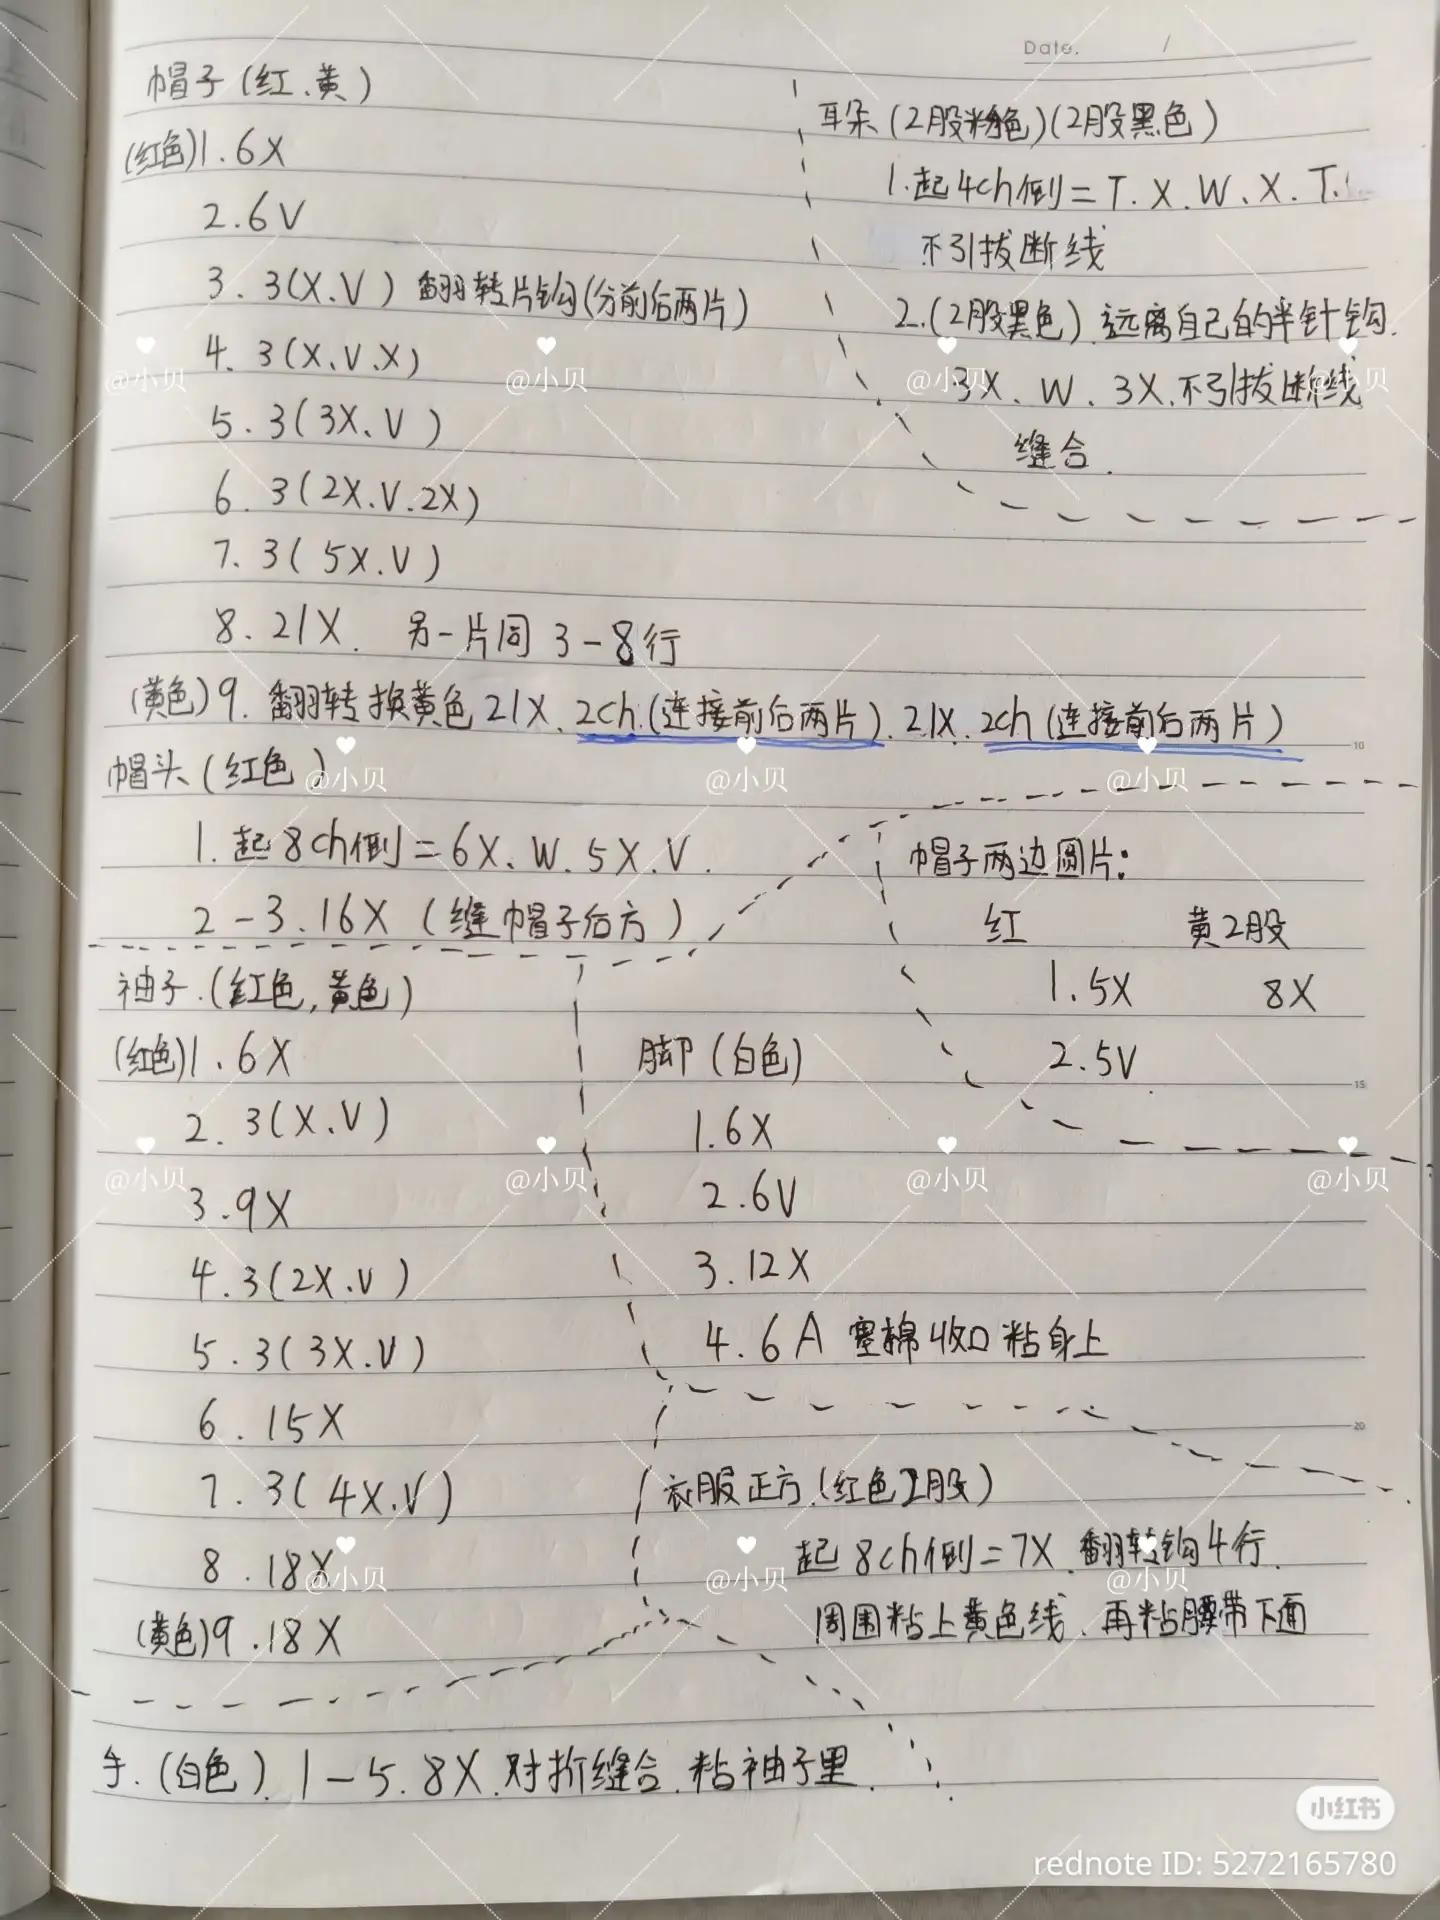 Date. /
帽子(红、黄)
(红色)1.6X
2.6V
3.3(X.V) 翻转片钩(分前后两片)
4.3(X.V.X)
5.3(3X、V)
6.3(2X.V.2X)
7.3(5X.V)
8.21X. 另一片同3-8行
(黄色)9.翻转换黄色21X.2ch.(连接前后两片).21X.2ch(连接前后两片)
耳朵(2股粉色)(2股黑色)
1.起4ch倒=T.X.W、X.T.
不引拔断线
2.(2股黑色).远离自己的半针钩.
3X、W、3X.不引拔断线
缝合.
帽头(红色)
1.起8ch倒=6X、W.5X.V.
2-3.16X(缝帽子后方)
帽子两边圆片:
红 黄2股
1.5X 8X
2.5V
袖子.(红色,黄色)
(红色)1.6X
2.3(X.V)
3.9X
4.3(2X.V)
5.3(3X.V)
6.15X
7.3(4X.V)
8.18X
(黄色)9.18X
脚(白色)
1.6X
2.6V
3.12X
4.6A 塞棉收口粘身上
衣服正方.(红色2股)
起8ch倒=7X.翻转钩4行.
周围粘上黄色线.再粘腰带下面
手.(白色).1-5.8X.对折缝合.粘袖子里.
10
15
20
@小贝
@小贝
@小贝
@小贝
@小贝
@小贝
@小贝
@小贝
@小贝
@小贝
@小贝
@小贝
@小贝
@小贝
小红书
rednote ID: 5272165780